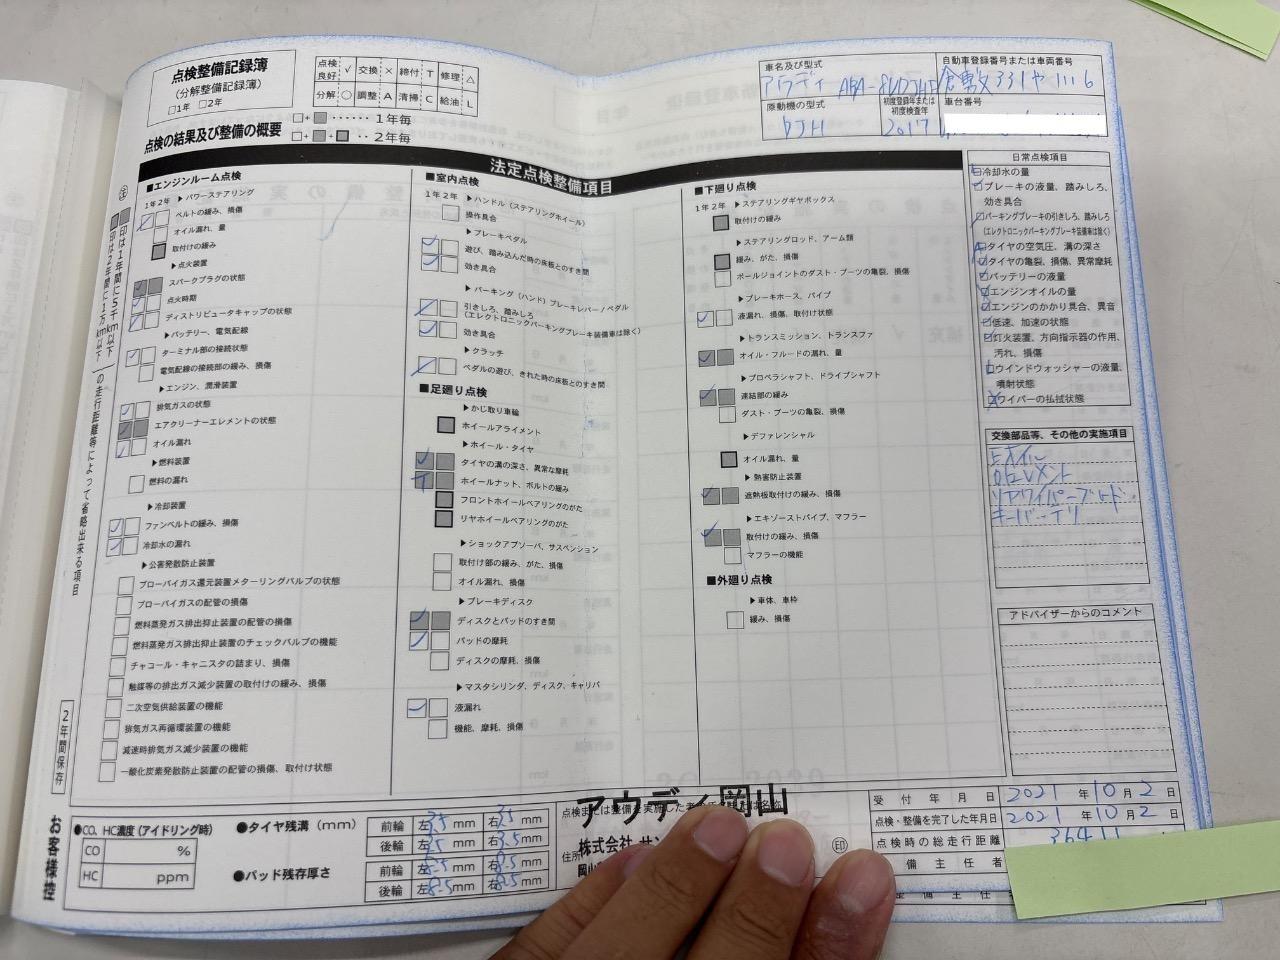 点検整備記録簿
(分解整備記録簿)
□1年 □2年
点検良好 √ 交換 × 締付 T 修理 △
分解 ○ 調整 A 清掃 C 給油 L
点検の結果及び整備の概要
□+■……1年毎
□+■+■……2年毎
車名及び型式
アウディ
自動車登録番号または車両番号
倉敷 331 や 1116
原動機の型式
DJH
初度登録年または初度検査年
2017
車台番号
法定点検整備項目
■エンジンルーム点検
1年2年
▶パワーステアリング
ベルトの緩み、損傷
オイル漏れ、量
取付けの緩み
▶点火装置
スパークプラグの状態
点火時期
ディストリビュータキャップの状態
▶バッテリー、電気配線
ターミナル部の接続状態
電気配線の接続部の緩み、損傷
▶エンジン、潤滑装置
排気ガスの状態
エアクリーナーエレメントの状態
オイル漏れ
▶燃料装置
燃料の漏れ
▶冷却装置
ファンベルトの緩み、損傷
冷却水の漏れ
▶公害発散防止装置
ブローバイガス還元装置メターリングバルブの状態
ブローバイガスの配管の損傷
燃料蒸発ガス排出抑止装置の配管の損傷
燃料蒸発ガス排出抑止装置のチェックバルブの機能
チャコール・キャニスタの詰まり、損傷
触媒等の排出ガス減少装置の取付けの緩み、損傷
二次空気供給装置の機能
排気ガス再循環装置の機能
減速時排気ガス減少装置の機能
一酸化炭素発散防止装置の配管の損傷、取付け状態
■室内点検
1年2年
▶ハンドル(ステアリングホイール)
操作具合
▶ブレーキペダル
遊び、踏み込んだ時の床板とのすき間
効き具合
▶パーキング(ハンド)ブレーキレバー/ペダル
引きしろ、踏みしろ
(エレクトロニックパーキングブレーキ装備車は除く)
効き具合
▶クラッチ
ペダルの遊び、きれた時の床板とのすき間
■足廻り点検
▶かじ取り車輪
ホイールアライメント
▶ホイール・タイヤ
タイヤの溝の深さ、異常な摩耗
ホイールナット、ボルトの緩み
フロントホイールベアリングのがた
リヤホイールベアリングのがた
▶ショックアブソーバ、サスペンション
取付け部の緩み、がた、損傷
オイル漏れ、損傷
▶ブレーキディスク
ディスクとパッドのすき間
パッドの摩耗
ディスクの摩耗、損傷
▶マスタシリンダ、ディスク、キャリパ
液漏れ
機能、摩耗、損傷
■下廻り点検
1年2年
▶ステアリングギヤボックス
取付けの緩み
▶ステアリングロッド、アーム類
緩み、がた、損傷
ボールジョイントのダスト・ブーツの亀裂、損傷
▶ブレーキホース、パイプ
液漏れ、損傷、取付け状態
▶トランスミッション、トランスファ
オイル・フルードの漏れ、量
▶プロペラシャフト、ドライブシャフト
連結部の緩み
ダスト・ブーツの亀裂、損傷
▶デファレンシャル
オイル漏れ、量
▶熱害防止装置
遮熱板取付けの緩み、損傷
▶エキゾーストパイプ、マフラー
取付けの緩み、損傷
マフラーの機能
■外廻り点検
▶車体、車枠
緩み、損傷
日常点検項目
冷却水の量
ブレーキの液量、踏みしろ、
効き具合
パーキングブレーキの引きしろ、踏みしろ
(エレクトロニックパーキングブレーキ装備車は除く)
タイヤの空気圧、溝の深さ
タイヤの亀裂、損傷、異常摩耗
バッテリーの液量
エンジンオイルの量
エンジンのかかり具合、異音
低速、加速の状態
灯火装置、方向指示器の作用、
汚れ、損傷
ウインドウォッシャーの液量、
噴射状態
ワイパーの払拭状態
交換部品等、その他の実施項目
リアワイパーブレード
キーバッテリ
アドバイザーからのコメント
2年間保存
お客様控
●CO、HC濃度(アイドリング時)
CO %
HC ppm
●タイヤ残溝(mm)
前輪 左 3.5 mm 右 3.5 mm
後輪 左 3.5 mm 右 3.5 mm
●パッド残存厚さ
前輪 左 8.5 mm 右 8.5 mm
後輪 左 8.5 mm 右 8.5 mm
アウディ岡山
株式会社 サン
住所
印
受付年月日 2021年10月2日
点検・整備を完了した年月日 2021年10月2日
点検時の総走行距離 36411
備主任者